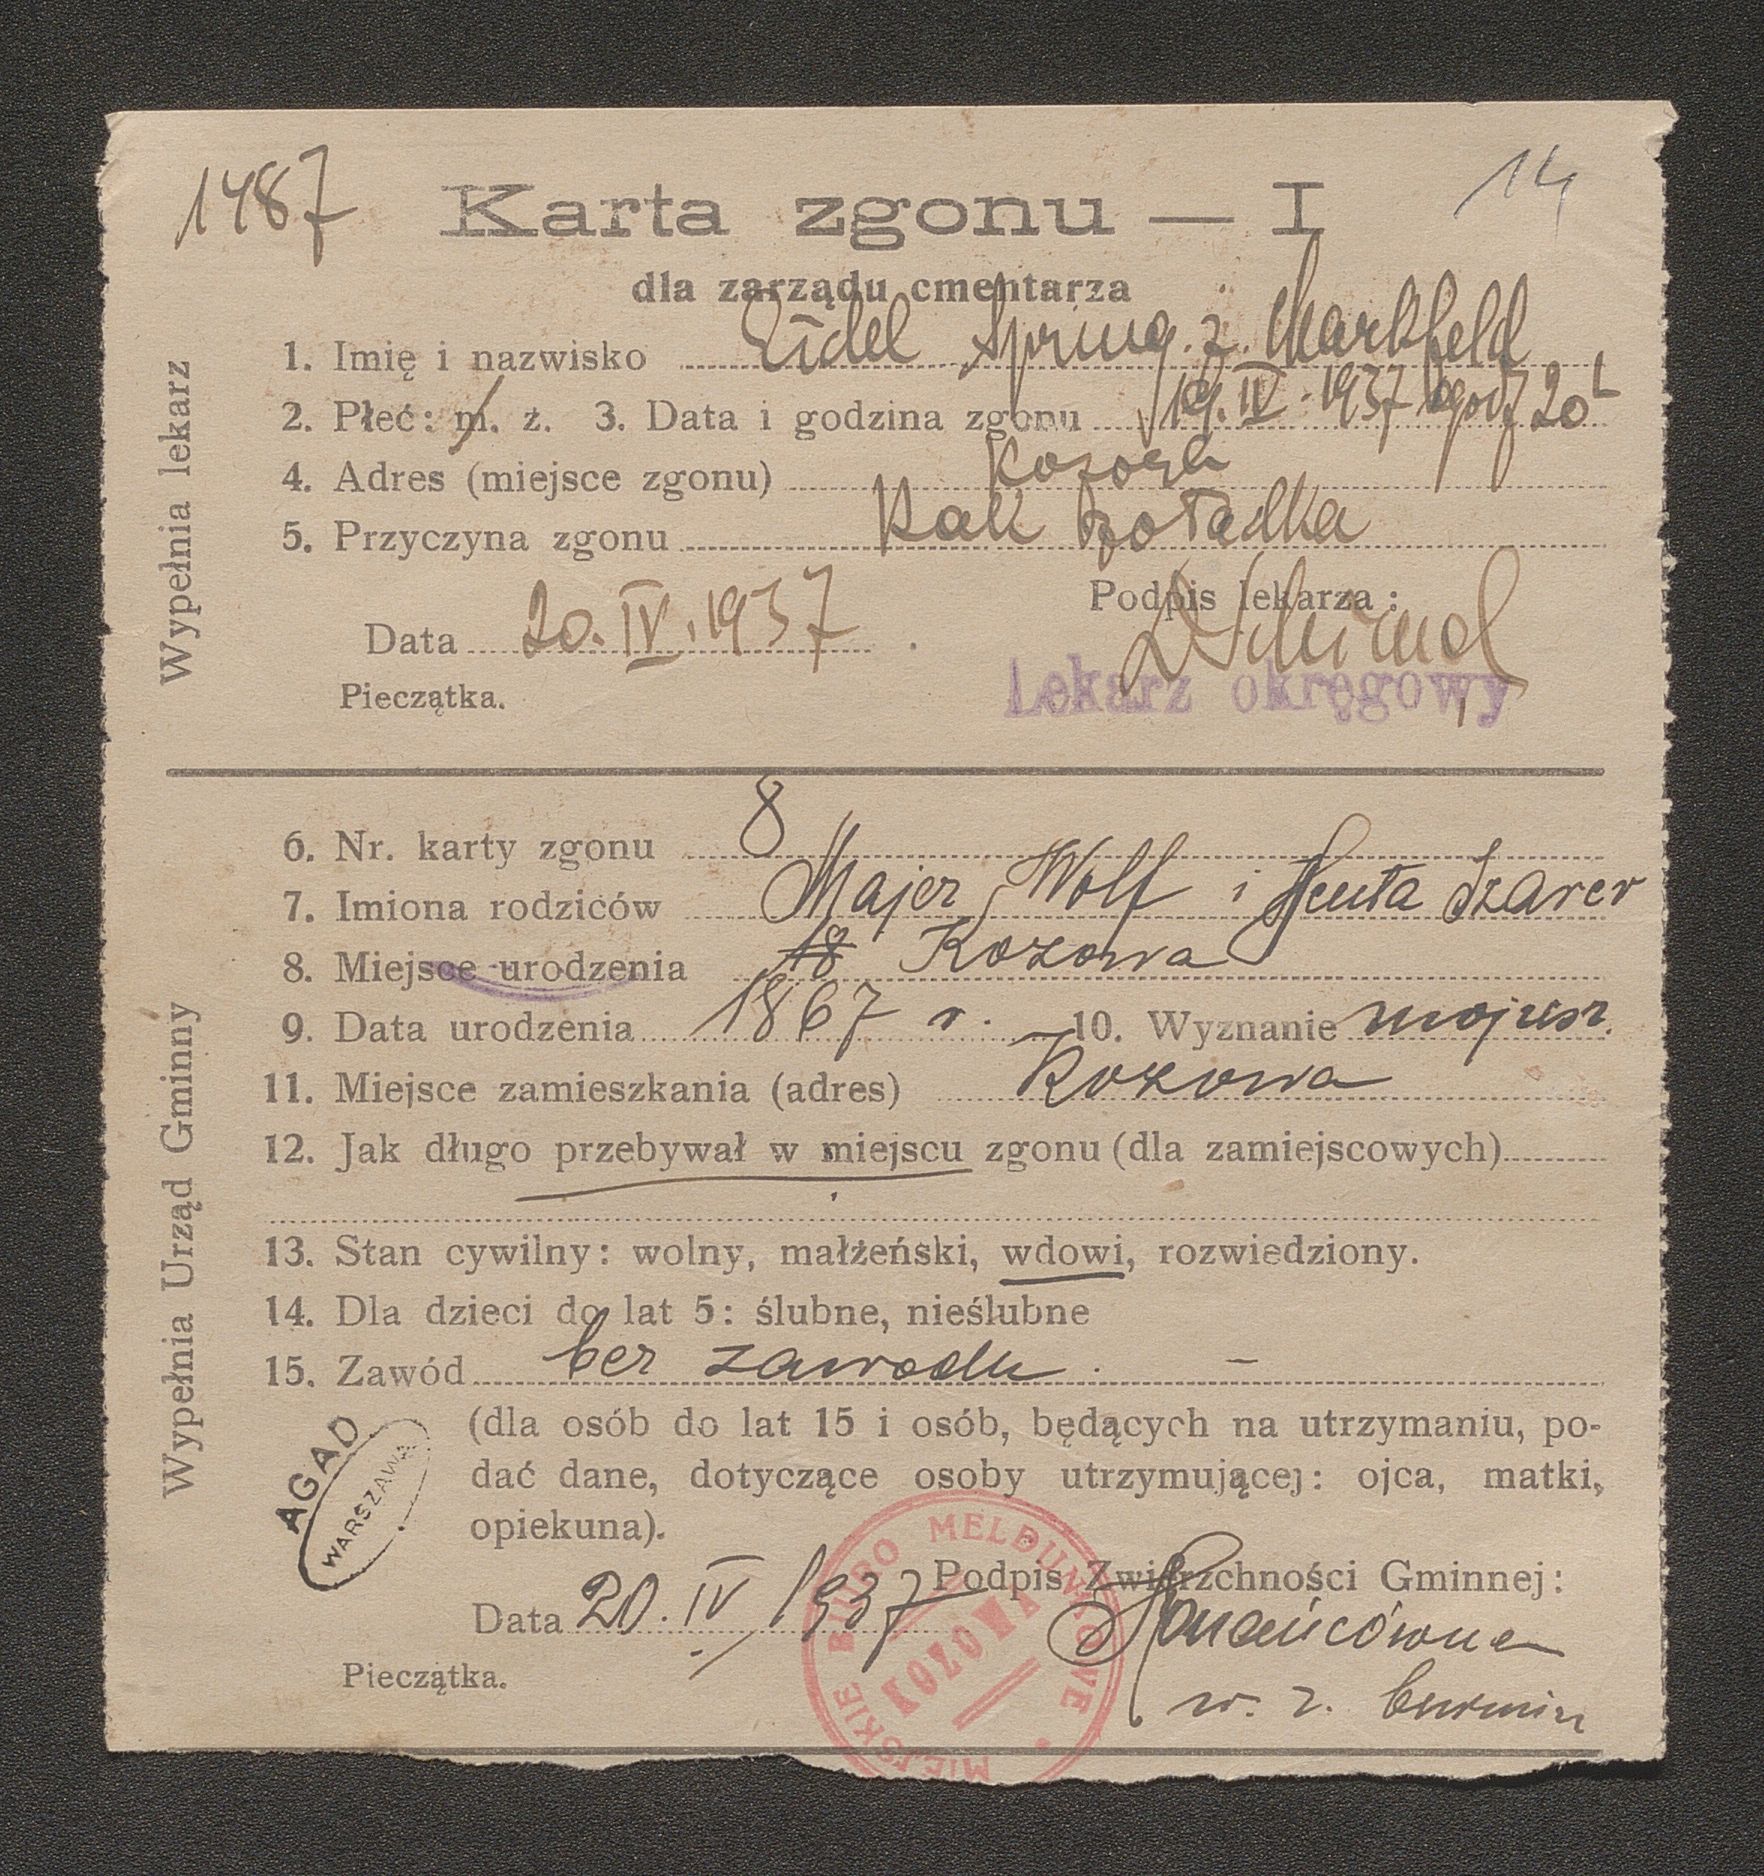 1487
14
Karta zgonu — I
dla zarządu cmentarza
Wypełnia lekarz
1. Imię i nazwisko Eidel Spring. z. Markfeld
2. Płeć: m. ż. 3. Data i godzina zgonu 19. IV. 1937 godz 20
4. Adres (miejsce zgonu) Kozowa
5. Przyczyna zgonu Rak żołądka
Podpis lekarza:
Data 20. IV. 1937
Lekarz okręgowy
Pieczątka.
Wypełnia Urząd Gminny
6. Nr. karty zgonu 8
7. Imiona rodziców Majer Wolf i Szarer
8. Miejsce urodzenia 18 Kozowa
9. Data urodzenia 1867 r. 10. Wyznanie mojżesz.
11. Miejsce zamieszkania (adres) Kozowa
12. Jak długo przebywał w miejscu zgonu (dla zamiejscowych)
13. Stan cywilny: wolny, małżeński, wdowi, rozwiedziony.
14. Dla dzieci do lat 5: ślubne, nieślubne
15. Zawód bez zawodu. –
(dla osób do lat 15 i osób, będących na utrzymaniu, po-
dać dane, dotyczące osoby utrzymującej: ojca, matki,
opiekuna).
AGAD
WARSZAWA
Podpis Zwierzchności Gminnej:
Data 20. IV. 1937
Pieczątka.
w. z.
MIEJSKIE BIURO MELDUNKOWE
KOZOWA